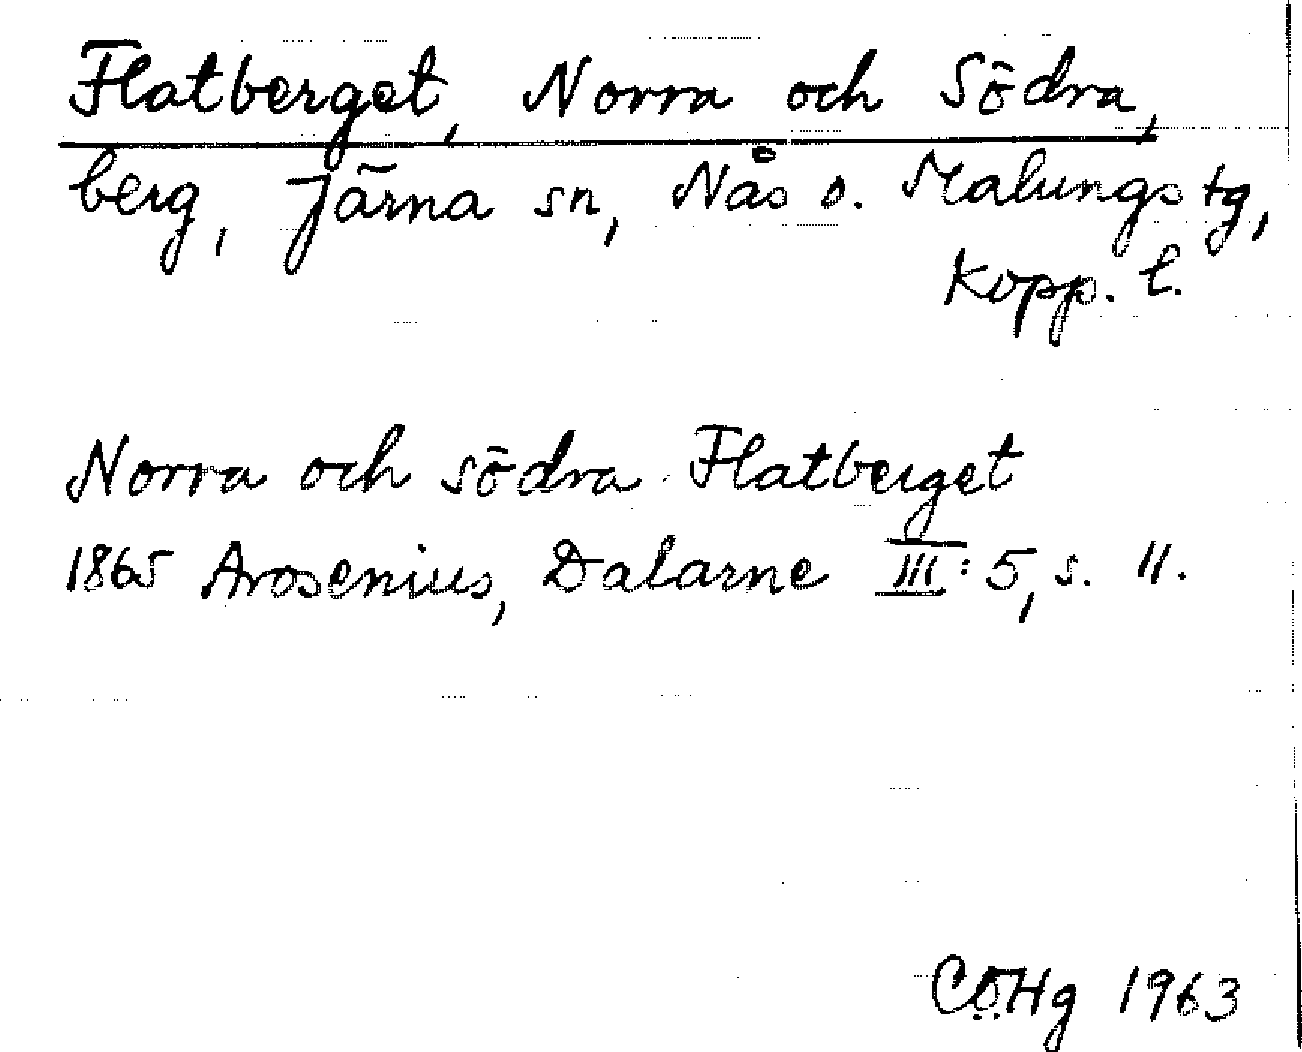 Flatberget, Norra och Södra,
berg, Järna sn, Nås o. Malungs tg,
Kopp. l.
Norra och södra Flatberget
1865 Arosenius, Dalarne III: 5, s. 11.
CÖHg 1963